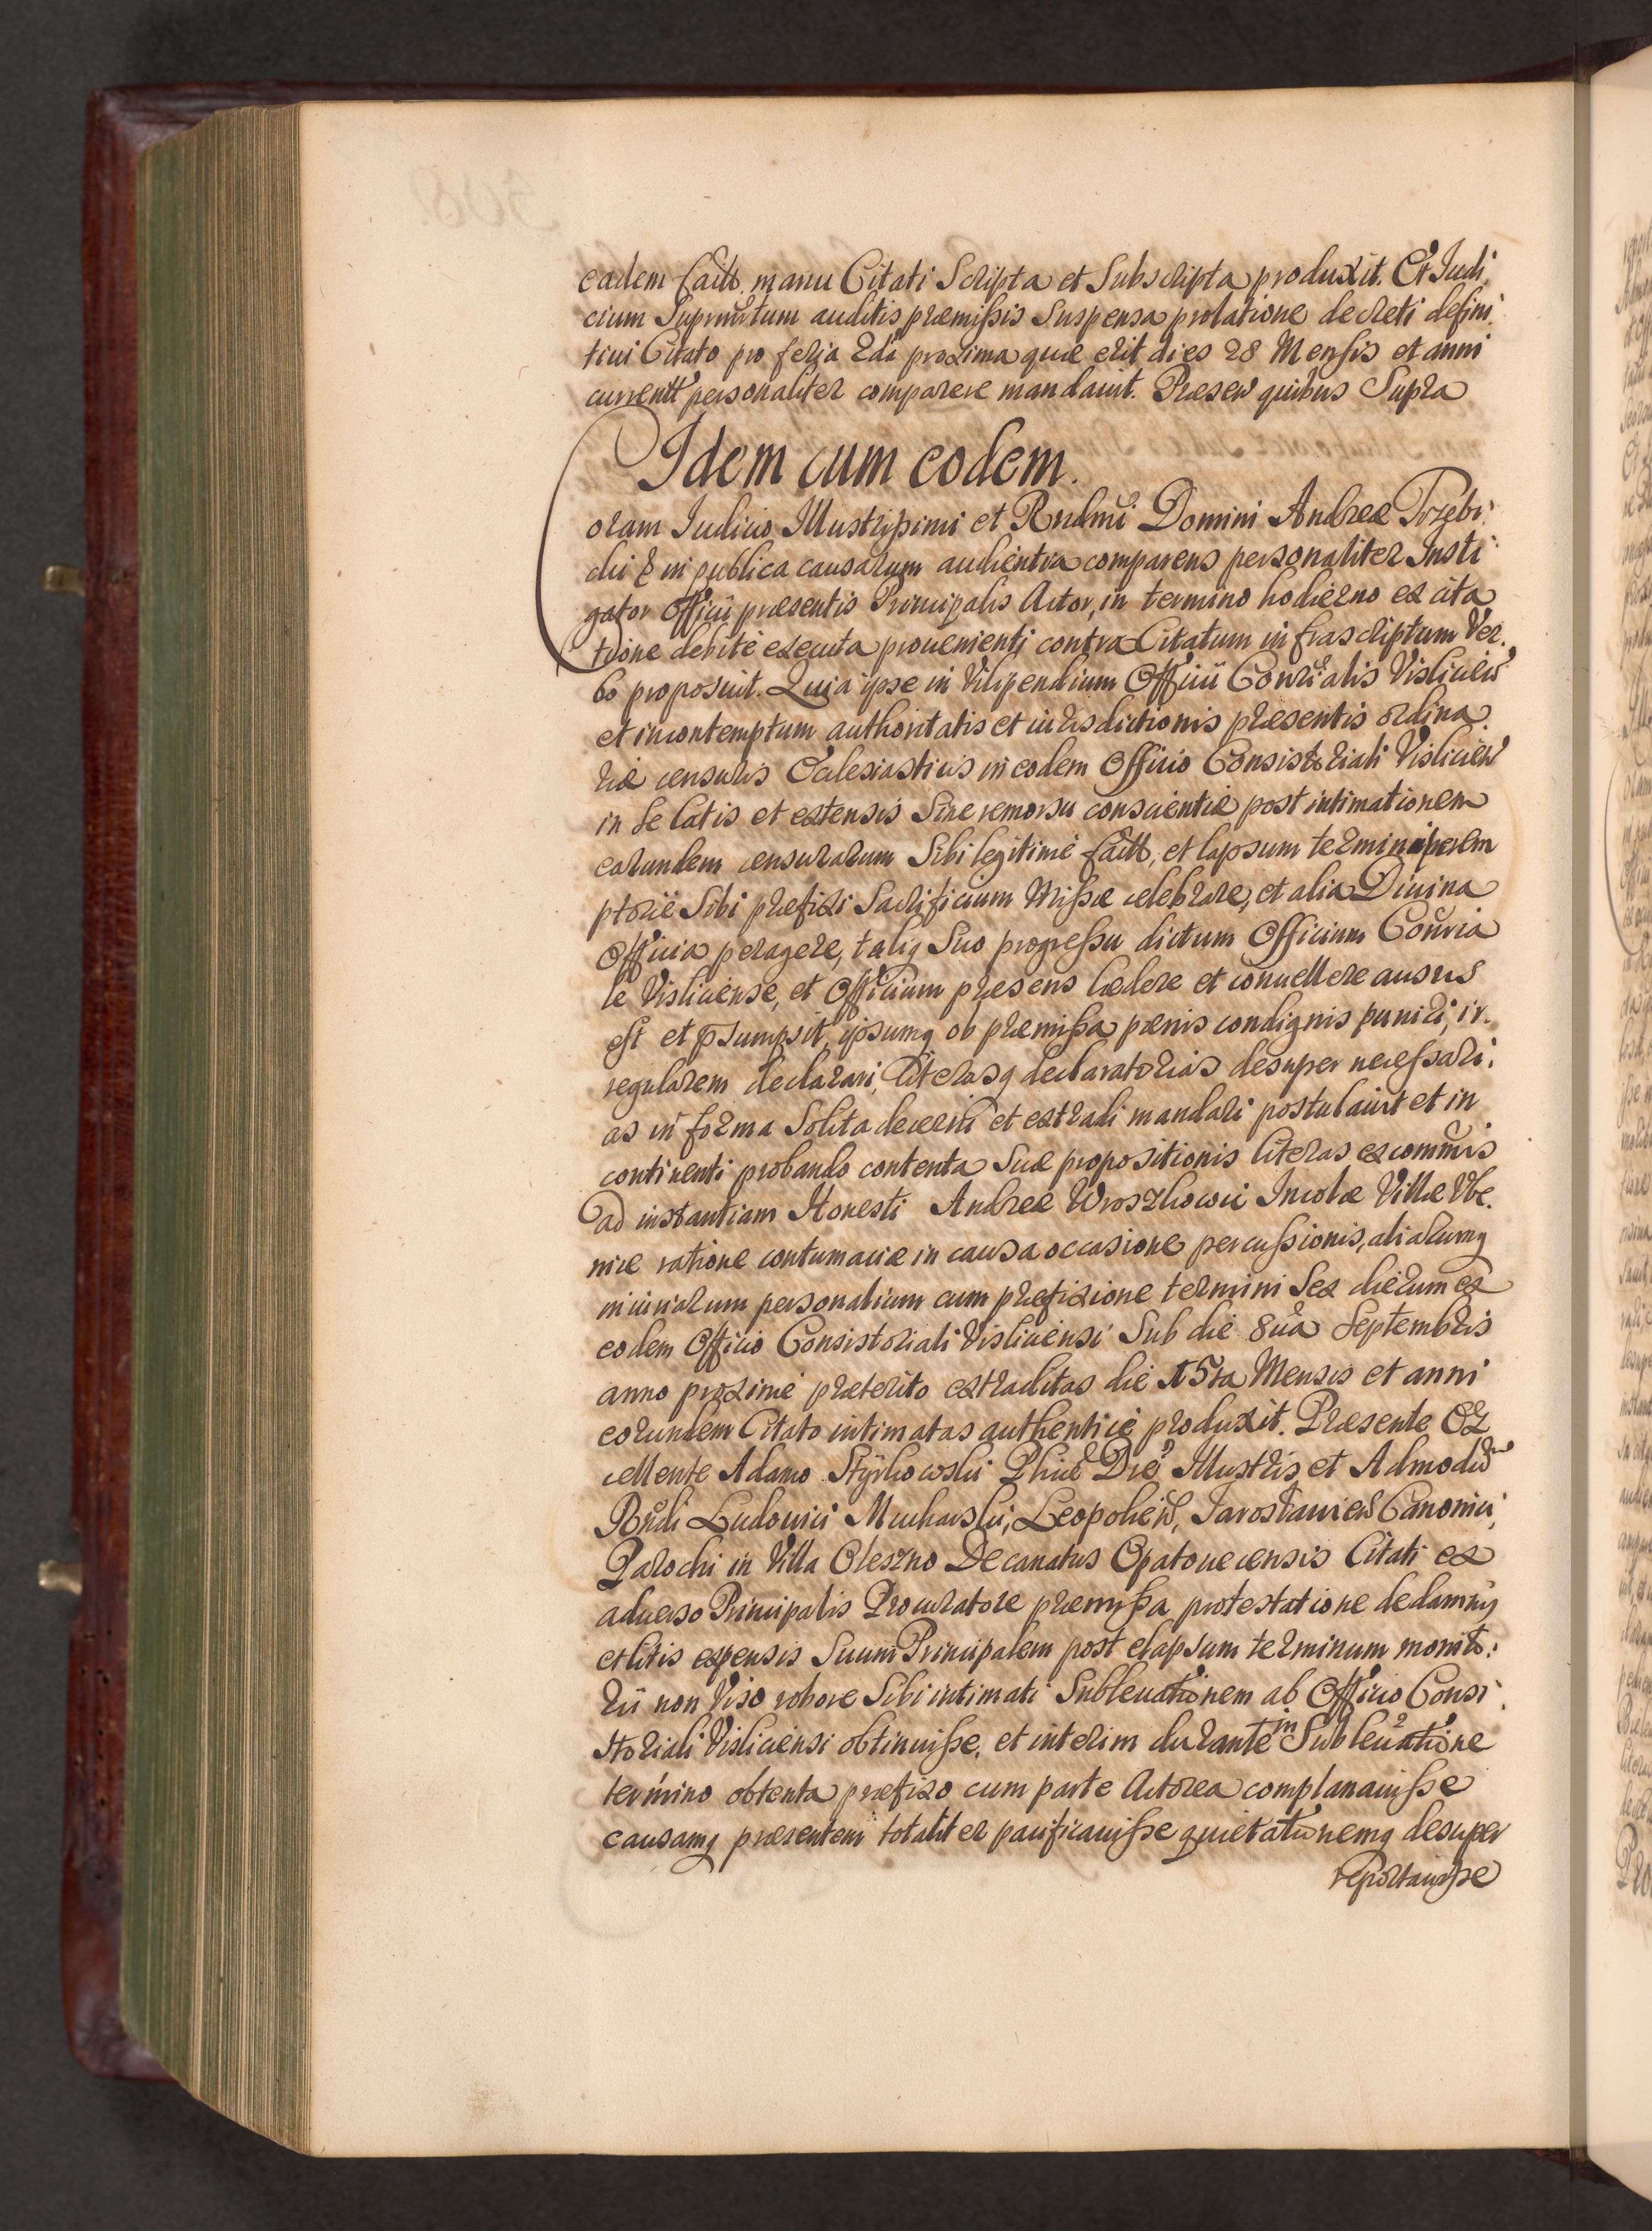 eadem manu Citati Scripta et Subscripta produxit. Et Judi
cium Suprmtum auditis præmissis Suspensa prolatione decreti defini
tiui Citato pro feria 2da proxima quæ erit dies 28 Mensis et anni
currentt personaliter comparere mandauit. Præsen quibus Supra
Idem cum eodem.
Coram Judicio Illustrissimi et Rndmi Domini Andreæ Trzebi
cki & in publica causarum audientia comparens personaliter Insti
gator Officii præsentis Principalis Actor, in termino hodierno ex cita
tione debite executa prouenienti contra Citatum infrascriptum Ver
bo proposuit. Quia ipse in Vilipendium Officii Conrialis Vislicien
et in contemptum authoritatis et iurisdictionis præsentis ordina
riæ censuris Ecclesiasticis in eodem Officio Consistoriali Vislicien
in se latis et extensis Sine remorsu conscientiæ post intimationem
earundem censurarum Sibi legitime et lapsum termini perem
ptorie Sibi præfixi Sacrificium Missæ celebrare, et alia Diuina
Officia peragere, taliq Suo progressu dictum Officium Conria
le Visliciense, et Officium præsens lædere et conuellere ausus
est et psumpsit, ipsumq ob præmissa pænis condignis puniri, ir
regularem declarari, literasq declaratorias desuper necessari
as in forma Solita decerni et extradi mandari postulauit et in
continenti probando contenta Suæ propositionis literas excommis
ad instantiam Honesti Andreæ Wroszkowic Incolæ Villæ Vbe
niæ ratione contumaciæ in causa occasione percussionis, aliarumq
iniuriarum personalium cum præfixione termini Sex dierum ex
eodem Officio Consistoriali Visliciensi Sub die 8ua Septembris
anno proxime præterito extraditas die 15ta Mensis et anni
eorundem Citato intimatas authentice produxit. Præsente Ex
cellente Adamo Styrkowski Phiæ Dre Illustris et Admodu
Rndi Ludouici Mucharski, Leopolien, Jaroslauien Canonici,
Parochi in Villa Oleszno Decanatus Opatouecensis Citati ex
aduerso Principalis Procuratore præmissa protestatione de damnis
et litis expensis Suum Principalem post elapsum terminum monito
rii non Viso robore Sibi intimati Subleuationem ab Officio Consi
storiali Visliciensi obtinuisse, et interim durante in Subleuatione
termino obtenta præfixo cum parte Actorea complanauisse
causamq præsentem totaliter pacificauisse quietationemq desuper
reportauisse